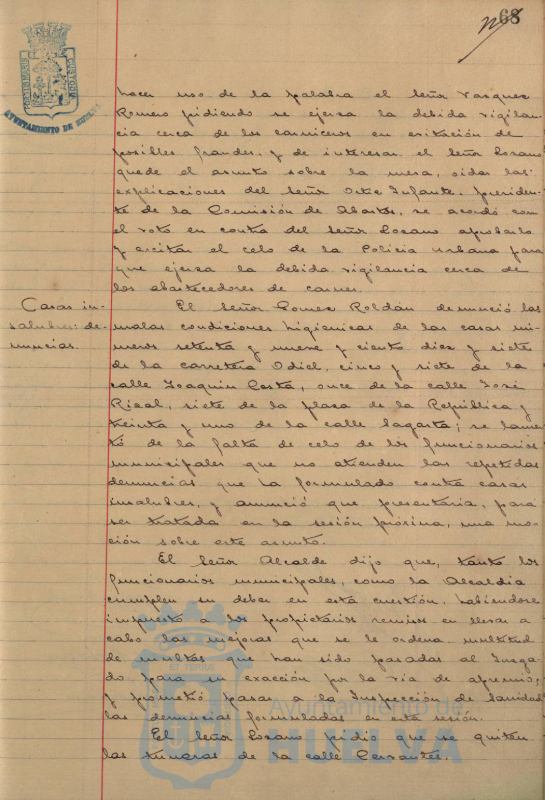 68
PORTUS MARIS
CUSTODIA
AYUNTAMIENTO DE HUELVA
hacer uso de la palabra el Señor Vazquez
Romero pidiendo se ejerza la debida vigilan-
cia cerca de los carniceros en evitación de
posibles fraudes, y de interesar el Señor Lozano
quede el asunto sobre la mesa, oidas las
explicaciones del Señor Ortiz Infante, presiden-
te de la Comisión de Abastos, se acordó con
el voto en contra del Señor Lozano aprobarlo
y excitar el celo de la Policia urbana para
que ejerza la debida vigilancia cerca de
los abastecedores de carnes.
Casas in-
salubres: de-
nuncias.
El Señor Gomez Roldán denunció las
malas condiciones higienicas de las casas nú-
meros setenta y nueve y ciento diez y siete
de la carretera Odiel, cinco y siete de la
calle Joaquin Costa, once de la calle José
Rizal, siete de la plaza de la República y
treinta y uno de la calle Sagasta; se lamen-
tó de la falta de celo de los funcionarios
municipales que no atienden las repetidas
denuncias que ha formulado contra casas
insalubres, y anunció que presentaria, para
ser tratada en la sesión próxima, una mo-
ción sobre este asunto.
El Señor Alcalde dijo que, tanto los
funcionarios municipales, como la Alcaldia
cumplen su deber en esta cuestión, habiendose
impuesto a los propietarios remisos en llevar a
cabo las mejoras que se le ordena multitud
de multas que han sido pasadas al Juzga-
do para su exacción por la via de apremio;
y prometió pasar a la Inspección de Sanidad
las denuncias formuladas en esta sesión.
El Señor Lozano pidió que se quiten
las tunaras de la calle Cervantes.
Ayuntamiento de
HUELVA